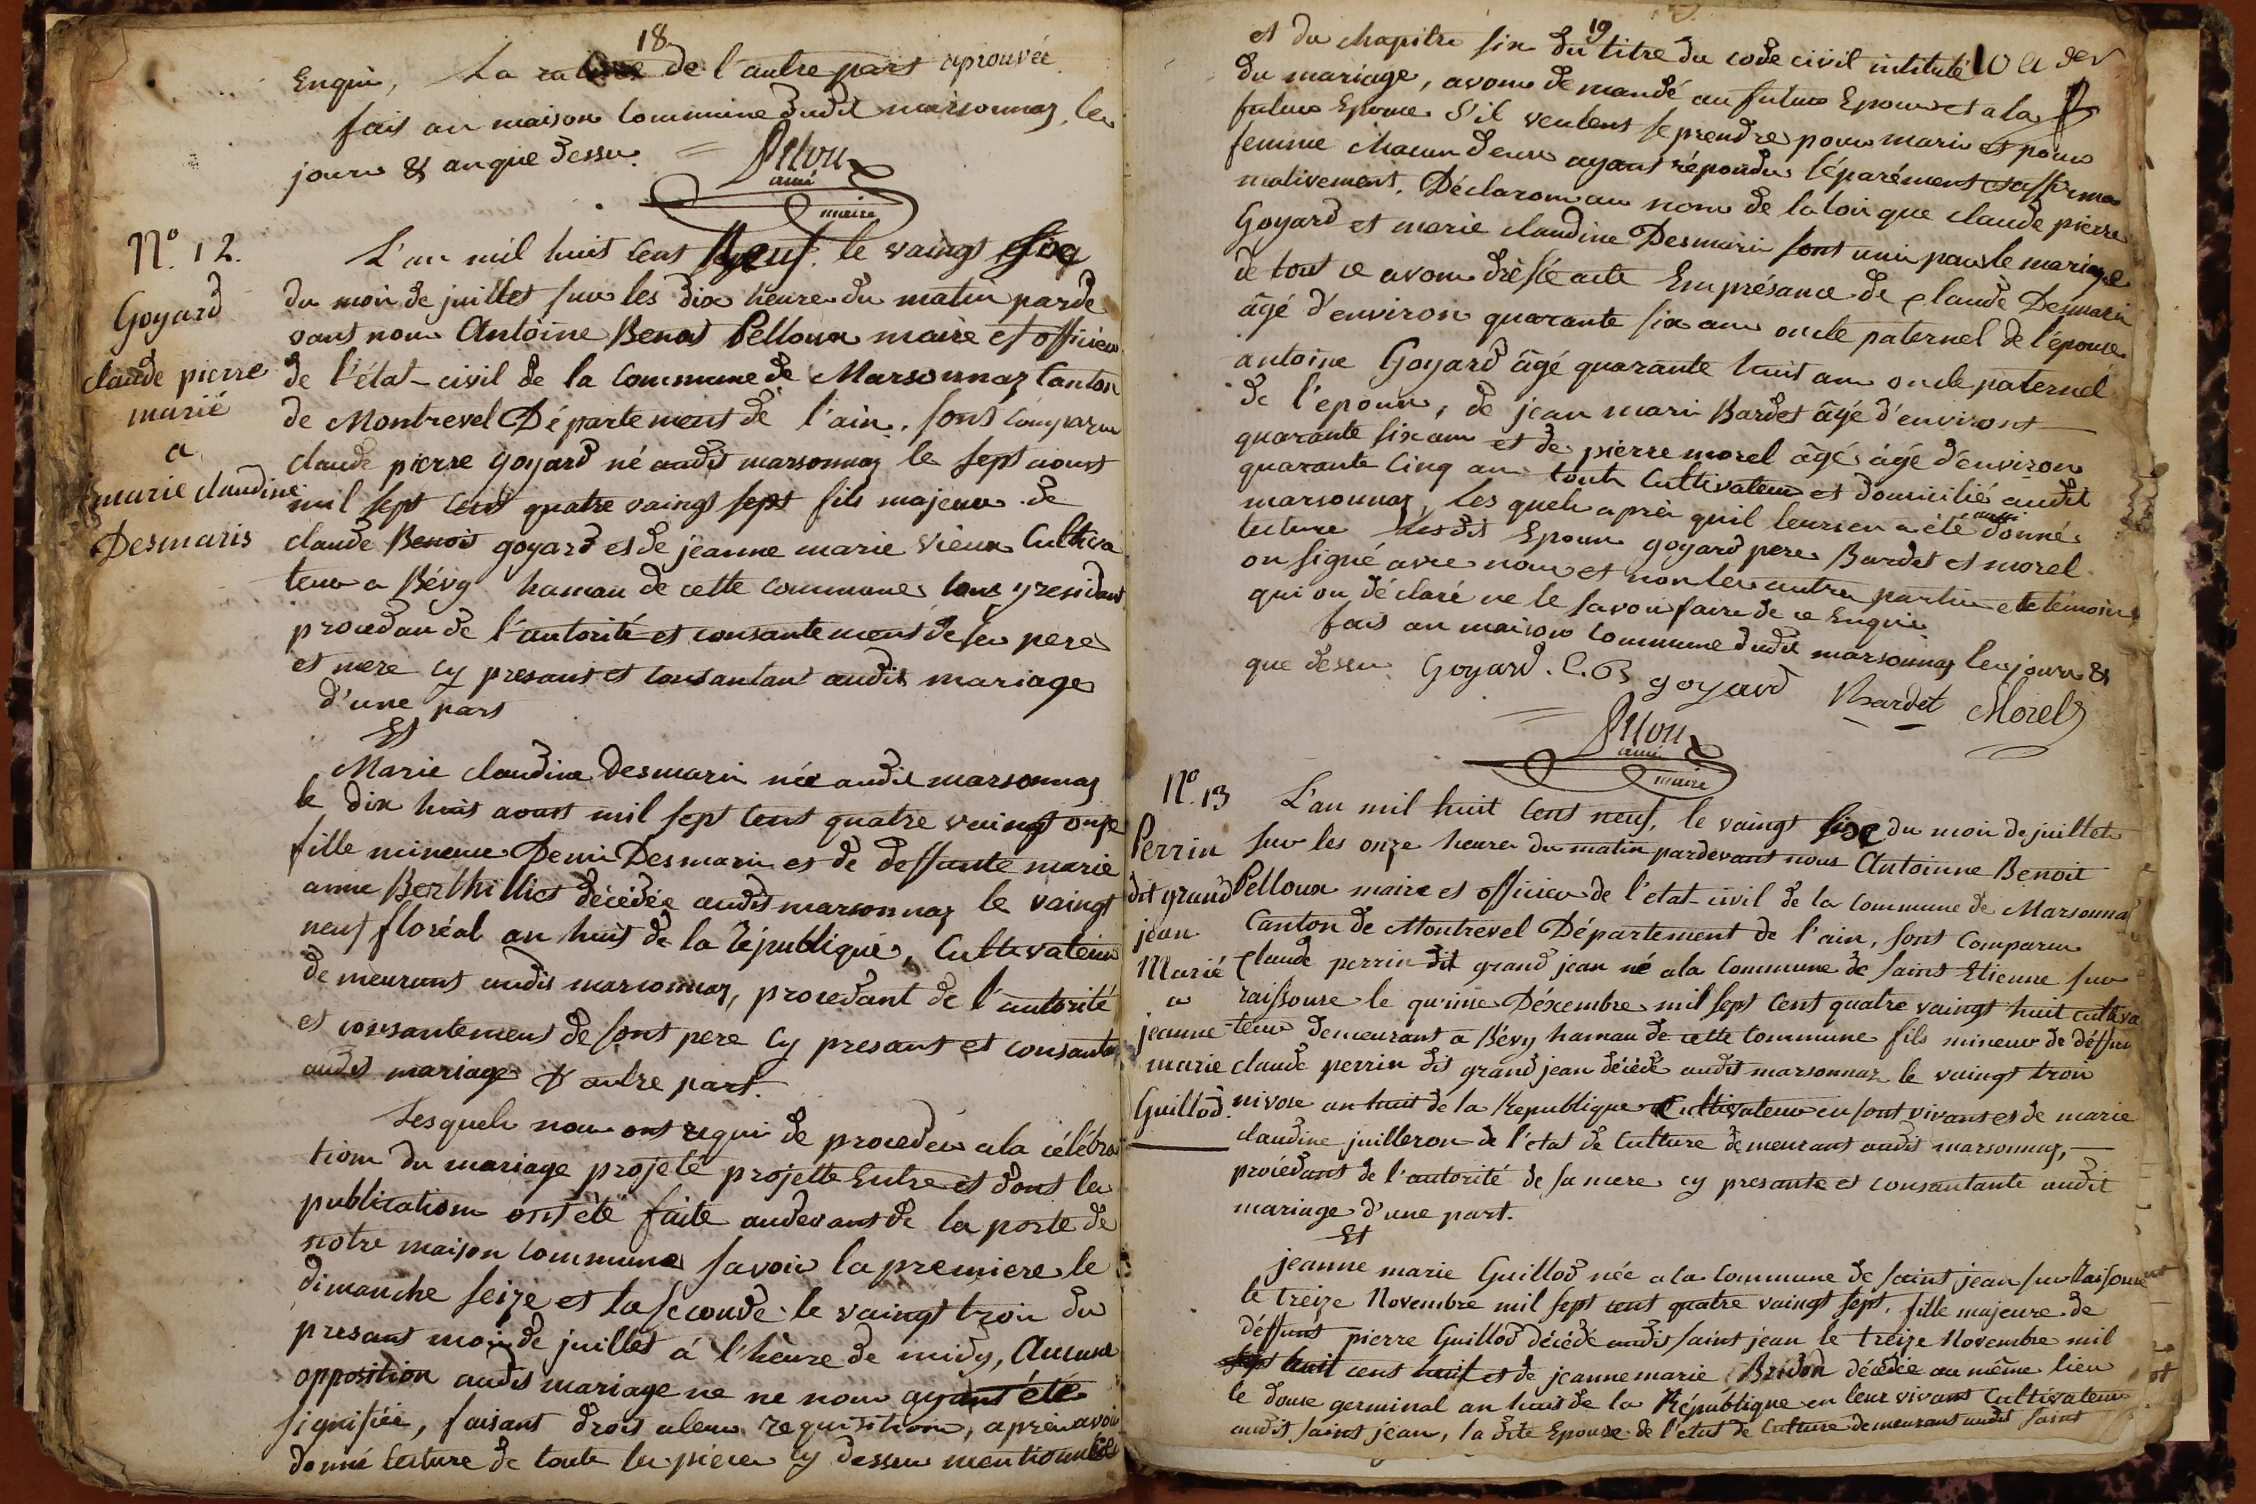 18
Enquis, La rature de l'autre part aprouvée
fais an maison Commune dudit marsonnaz, les
jours & an que dessus.
Pelloux
ainé
maire
N.° 12.
Goyard
claude pierre
marié
a
marie claudine
Desmaris
L'an mil huit Cent Neuf. le vaingt six
du mois de juillet sur les dix heures du matin parde
vant nous Antoine Benoit Pelloux maire et officier
de l'état-civil de la Commune de Marsonnaz Canton
de Montrevel Département de l'ain, sont Comparu
claude pierre Goyard né audit marsonnaz le sept aoust
mil sept Cent quatre vaingt sept fils majeur de
claude Benoit goyard et de jeanne marie vieux Cultiva
teur a Bévy hamau de cette Commune tous y residant
procedan de l'autorité et consantement de ses pere
et mere cy presant et Consantant audit mariage
d'une part
Et
Marie claudine Desmaris née audit marsonnaz
le dix huit aoust mil sept Cent quatre vaingt onze
fille mineure Denis Desmaris et de deffunte marie
anne Berthilliet décédée audit marsonnaz le vaingt
neuf floréal an huit de la République, Cultivateur
demeurant audit marsonnaz, procedant de l'autorité
et consantement de sont pere Cy presant et consantant
audit mariage d'autre part.
Lesquels nous ont requis de proceder a la célébra
tions du mariage projeté projette Entre et dont les
publications ont été faite audevant de la porte de
notre maison Commune savoir la premiere le
dimanche seize et la seconde le vaingt trois du
presant mois de juillet á l'heure de midy, Aucune
opposition audit mariage ne ne nous ayant été
signifiée, faisant droit a leur requisition, après avoir
donné lecture de toute les piéces cy dessus mentionnées
19
et du chapitre six du titre du code civil intitulé
du mariage, avons demandé au futur Epoux et a la
future Epouse s'il veulent se prendre pour mari et pour
femme chacun d'eux ayant répondu séparément et affirma
mativement. Déclarons au nom de la loi que claude pierre
Goyard et marie claudine Desmaris sont unis par le mariage
de tout ce avons dréssé acte En présance de claude Desmaris
âgé d'environ quarante six ans oncle paternel de l'épouse
antoine Goyard âgé quarante huit ans oncle paternel
de l'epoux, de jean marie Bardet âgé d'environt
quarante six ans et de pierre morel âgé âgé d'environ
quarante Cinq ans touts Cultivateur et domicilié audit
marsonnaz, Les quels après quil leurs en a été aussi donné
lecture Lesdit Epoux goyard pere Bardet et morel
on signé avec nous et non les autres parties et témoins
qui on déclaré ne le savoir faire de ce Enquis
fais an maison Commune dudit marsonnaz les jours &
que dessus Goyard. C. B goyard Bardet Morel
Pelloux
ainé
maire
N.° 13
Perrin
dit grand
jean
Marié
a
jeanne
marie
Guillod.
L'an mil huit Cent neuf, le vaingt six du mois de juillet
sur les onze heures du matin pardevant nous Antoinne Benoit
Pelloux maire et officier de l'etat-civil de la Commune de Marsonnaz
Canton de Montrevel Département de l'ain, sont Comparu
Claude perrin dit grand jean né a la Commune de saint Etienne sur
raissouse le quinze Décembre mil sept Cent quatre vaingt huit cultiva
teur demeurant a Bévy hamau de cette Commune fils mineur de déffun
claude perrin dit grand jean décédé audit marsonnaz le vaingt trois
nivose an huit de la Republique Cultivateur en sont vivant et de marie
claudine juilleron de l'état de Culture demeurant audit marsonnaz,
procédant de l'autorité de sa mere cy presante et consantante audit
mariage d'une part.
Et
jeanne marie Guillod née a la Commune de saint jean sur Raissouse
le treize Novembre mil sept cent quatre vaingt sept, fille majeure de
déffunt pierre Guillod décédé audit saint jean le treize Novembre mil
sept huit cent huit et de jeanne marie Bridon décédée au même lieu
le douse germinal an huit de la République en leur vivant Cultivateur
audit saint jean, la dite Epouse de l'etat de Culture demeurant audit saint